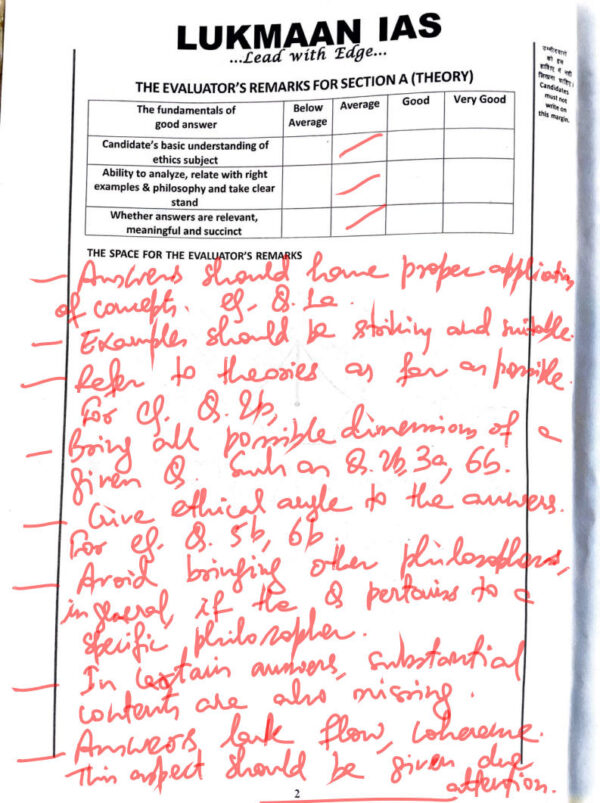 LUKMAAN IAS
...Lead with Edge...
उम्मीदवारों
को इस
हाशिए में नहीं
लिखना चाहिए।
Candidates
must not
write on
this margin.
THE EVALUATOR'S REMARKS FOR SECTION A (THEORY)
The fundamentals of good answer Below Average Average Good Very Good
Candidate's basic understanding of ethics subject
Ability to analyze, relate with right examples & philosophy and take clear stand
Whether answers are relevant, meaningful and succinct
THE SPACE FOR THE EVALUATOR'S REMARKS
– Answers should have proper application
of concepts. eg. Q. 1a.
– Examples should be striking and suitable.
– Refer to theories as far as possible.
For eg. Q. 2b,
– Bring all possible dimensions of a
given Q. Such as Q. 2b, 3a, 6b.
– Give ethical angle to the answers.
For eg. Q. 5b, 6b
– Avoid bringing other philosophers,
in general, if the Q pertains to a
specific philosopher.
– In certain answers, substantial
contents are also missing.
– Answers lack flow, coherence.
This aspect should be given due
attention.
2